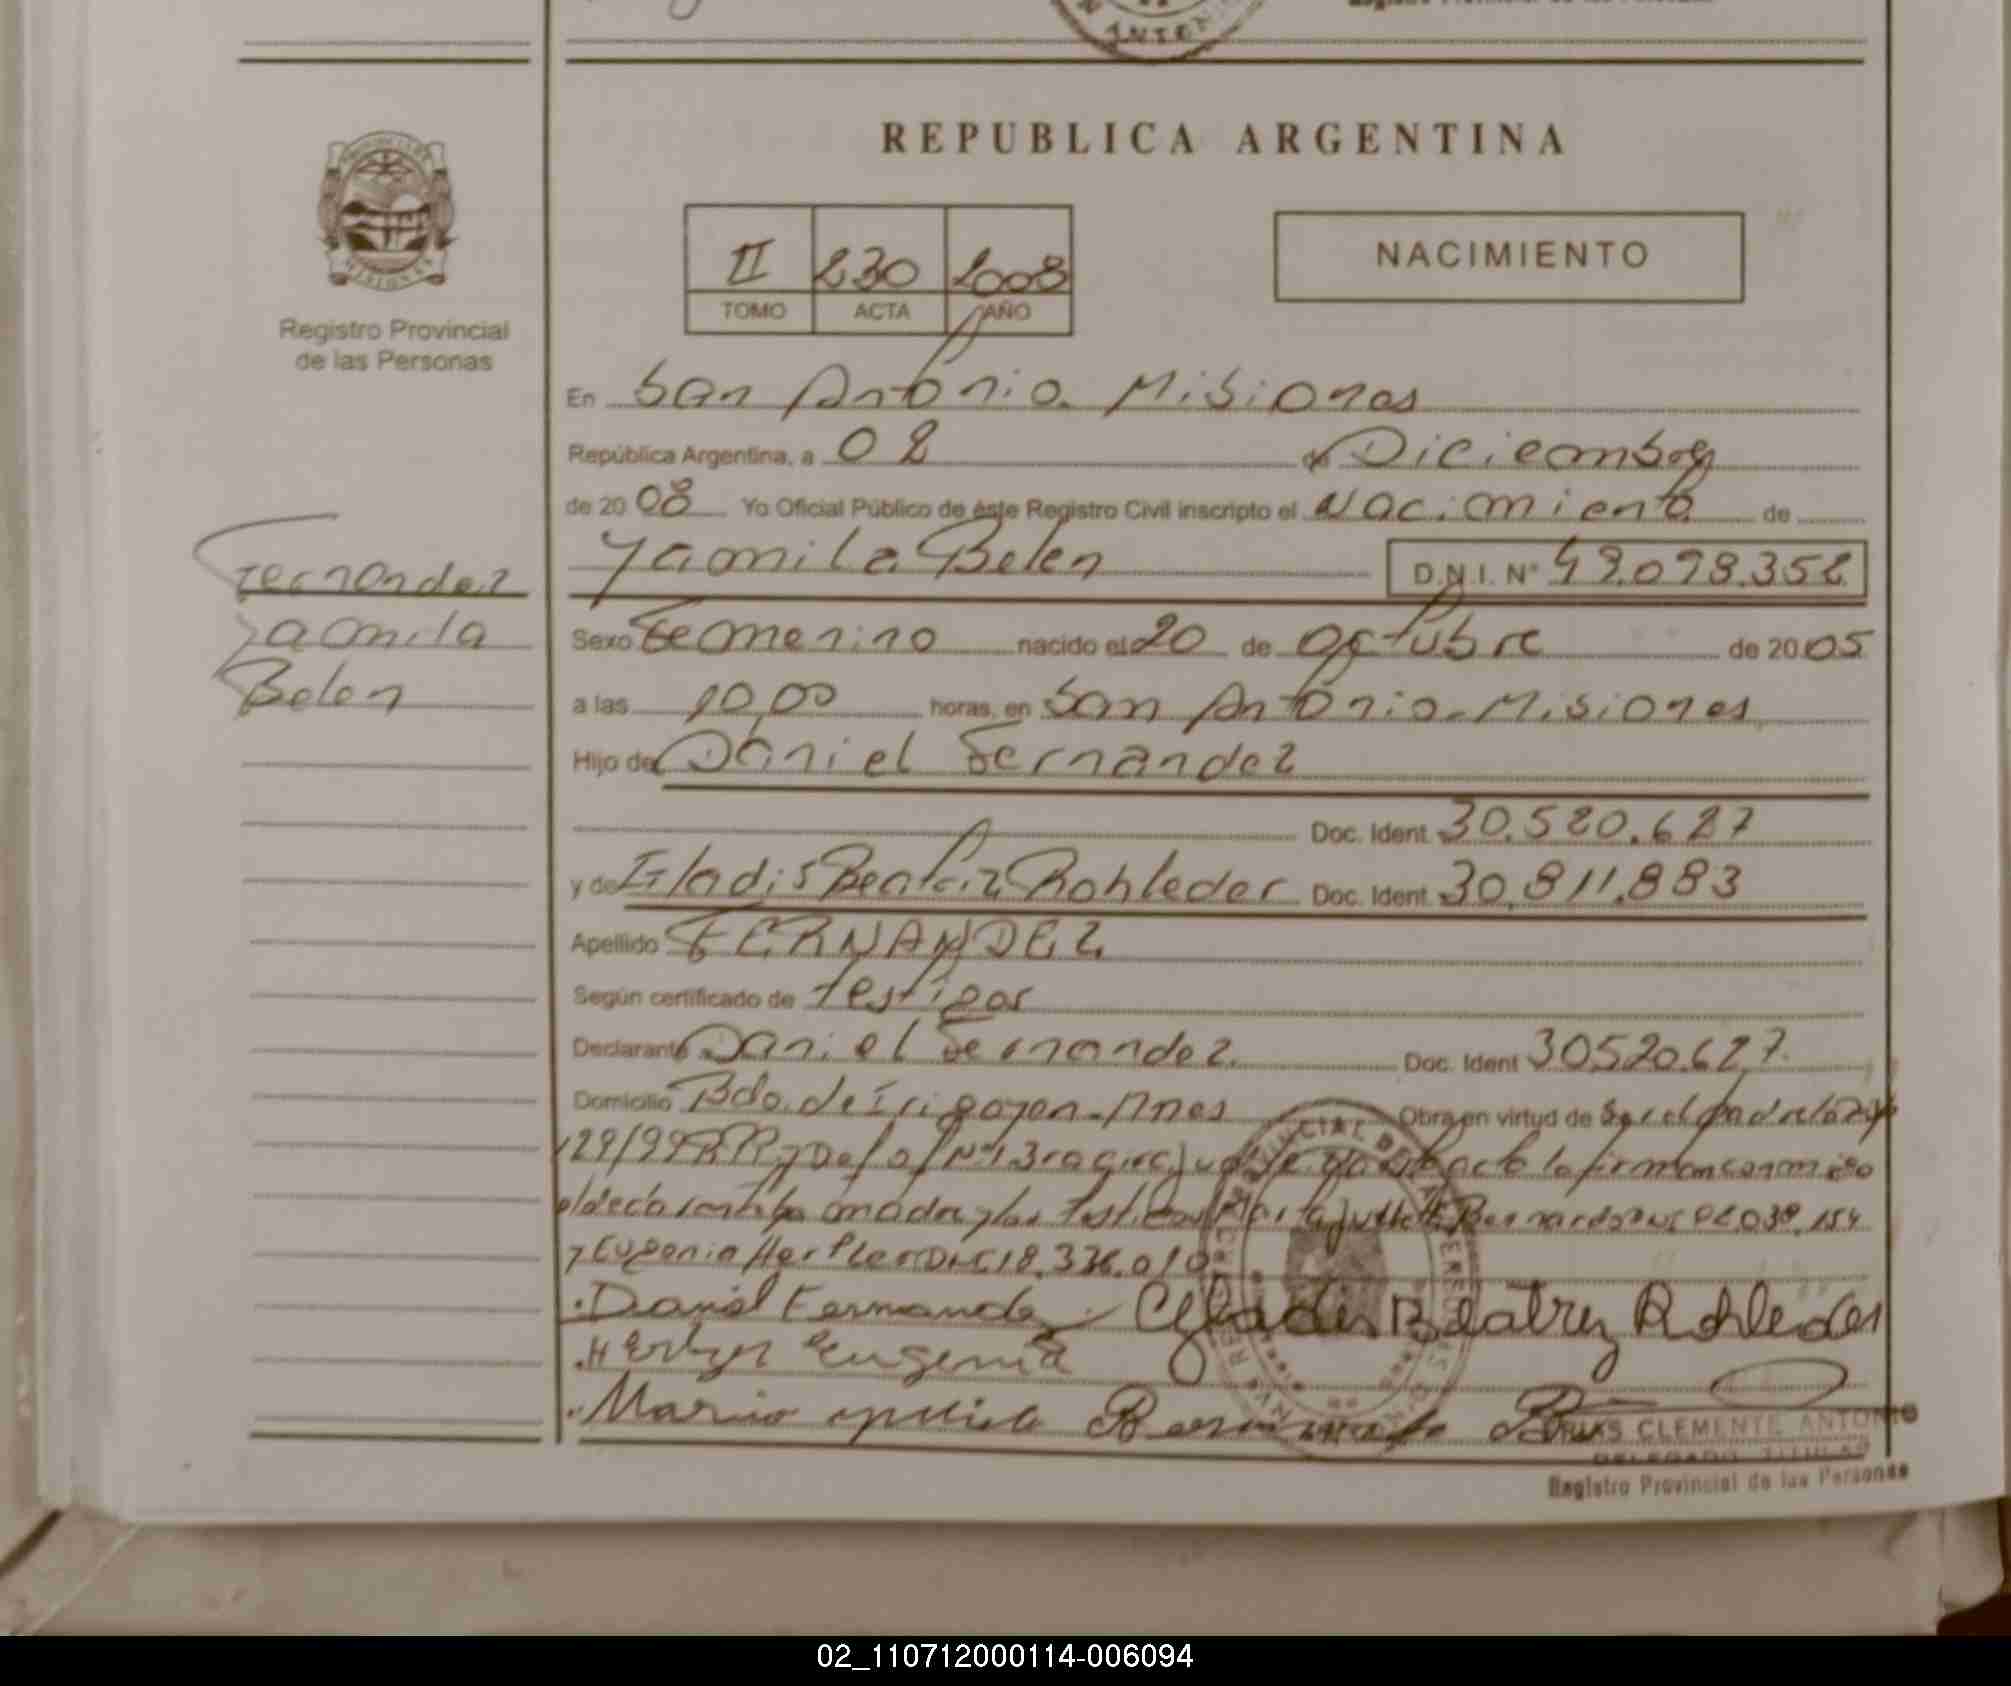 REPUBLICA ARGENTINA
II 230 2008
TOMO ACTA AÑO
NACIMIENTO
Registro Provincial
de las Personas
En San Antonio. Misiones
República Argentina, a 02 de Diciembre
de 2008 Yo Oficial Público de éste Registro Civil inscripto el Nacimiento de
Yamila Belen D.N.I. N°
Fernandez
Yamila
Belen
Sexo Femenino nacido el 20 de octubre de 2005
a las 10,00 horas, en San Antonio. Misiones
Hijo de Daniel Fernandez
Doc. Ident. 30.520.627
y de Gladis Beatriz Rohleder Doc. Ident. 30.811.883
Apellido FERNANDEZ
Según certificado de testigos
Declarante Daniel Fernandez. Doc. Ident 30520.627.
Domicilio Bdo. de Irigoyen - Mnes Obra en virtud de Ser el padre
la firman conmigo
el declarante la madre y los testigos Bernardo
y Eugenia DNI 18.336.010
Daniel Fernandez Gladis Beatriz Rohleder
Eugenia
Mario
CLEMENTE ANTONIO
DELEGADO TITULAR
Registro Provincial de las Personas
02_110712000114-006094